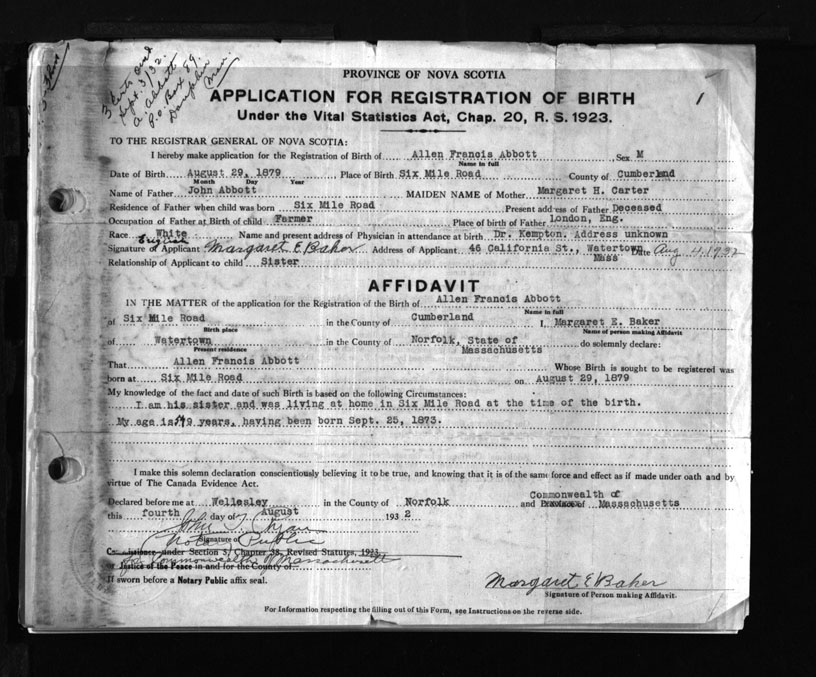 3 certs and
Sept. 3/32.
A. Abbott
P.O. Box 89.
Man.
PROVINCE OF NOVA SCOTIA
1
APPLICATION FOR REGISTRATION OF BIRTH
Under the Vital Statistics Act, Chap. 20, R. S. 1923.
TO THE REGISTRAR GENERAL OF NOVA SCOTIA:
I hereby make application for the Registration of Birth of Allen Francis Abbott , Sex M
Name in full
Date of Birth August 29, 1879 Place of Birth Six Mile Road County of Cumberland
Month Day Year
Name of Father John Abbott MAIDEN NAME of Mother Margaret H. Carter
Residence of Father when child was born Six Mile Road Present address of Father Deceased
Occupation of Father at Birth of child Farmer Place of birth of Father London, Eng.
Race White Name and present address of Physician in attendance at birth Dr. Kempton, Address unknown
English
Signature of Applicant Margaret E Baker Address of Applicant 46 California St., Watertown Date Aug 4, 1932
Mass
Relationship of Applicant to child Sister
AFFIDAVIT
IN THE MATTER of the application for the Registration of the Birth of Allen Francis Abbott
Name in full
of Six Mile Road in the County of Cumberland I, Margaret E. Baker
Birth place Name of person making Affidavit
of Watertown in the County of Norfolk, State of do solemnly declare:
Present residence Massachusetts
That Allen Francis Abbott Whose Birth is sought to be registered was
born at Six Mile Road on August 29, 1879
My knowledge of the fact and date of such Birth is based on the following Circumstances:
I am his sister and was living at home in Six Mile Road at the time of the birth.
My age is 59 years, having been born Sept. 25, 1873.
I make this solemn declaration conscientiously believing it to be true, and knowing that it is of the same force and effect as if made under oath and by
virtue of The Canada Evidence Act.
Declared before me at Wellesley in the County of Norfolk and Province of Commonwealth of Massachusetts
this fourth day of August 1932
John T. Ryan
Notary Public
Signature of
Commissioner under Section 3, Chapter 38, Revised Statutes, 1923
for Commonwealth of Massachusetts
or Justice of the Peace in and for the County of
If sworn before a Notary Public affix seal.
Margaret E Baker
Signature of Person making Affidavit.
For Information respecting the filling out of this Form, see Instructions on the reverse side.